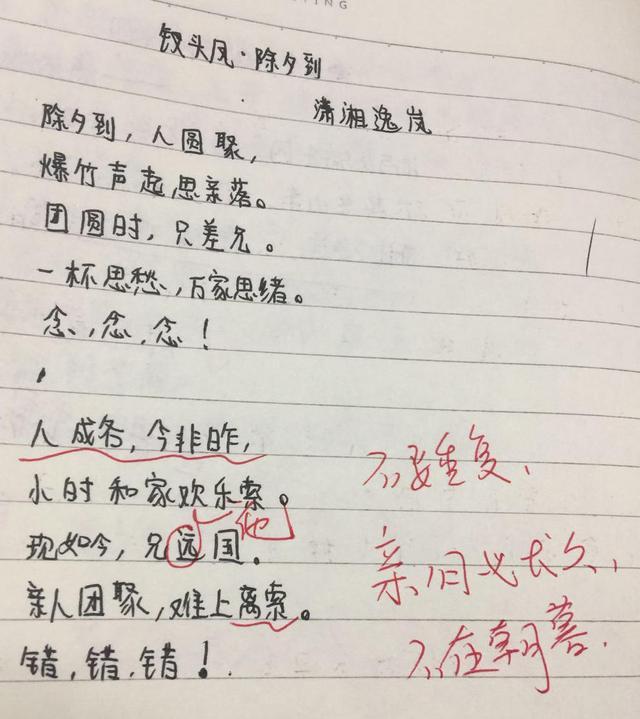 钗头凤·除夕到
潇湘逸岚
除夕到，人圆聚，
爆竹声起思亲落。
团圆时，只差兄。
一杯思愁，万家思绪。
念、念、念！
人成各，今非昨，
小时和家欢乐索。
现如今，兄远国。
他
亲人团聚，难上离索。
错，错，错！
不要重复、
亲情必长久，
不在朝暮.